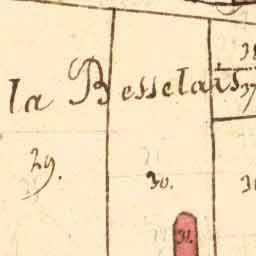 la Besselais
29.
30.
31.